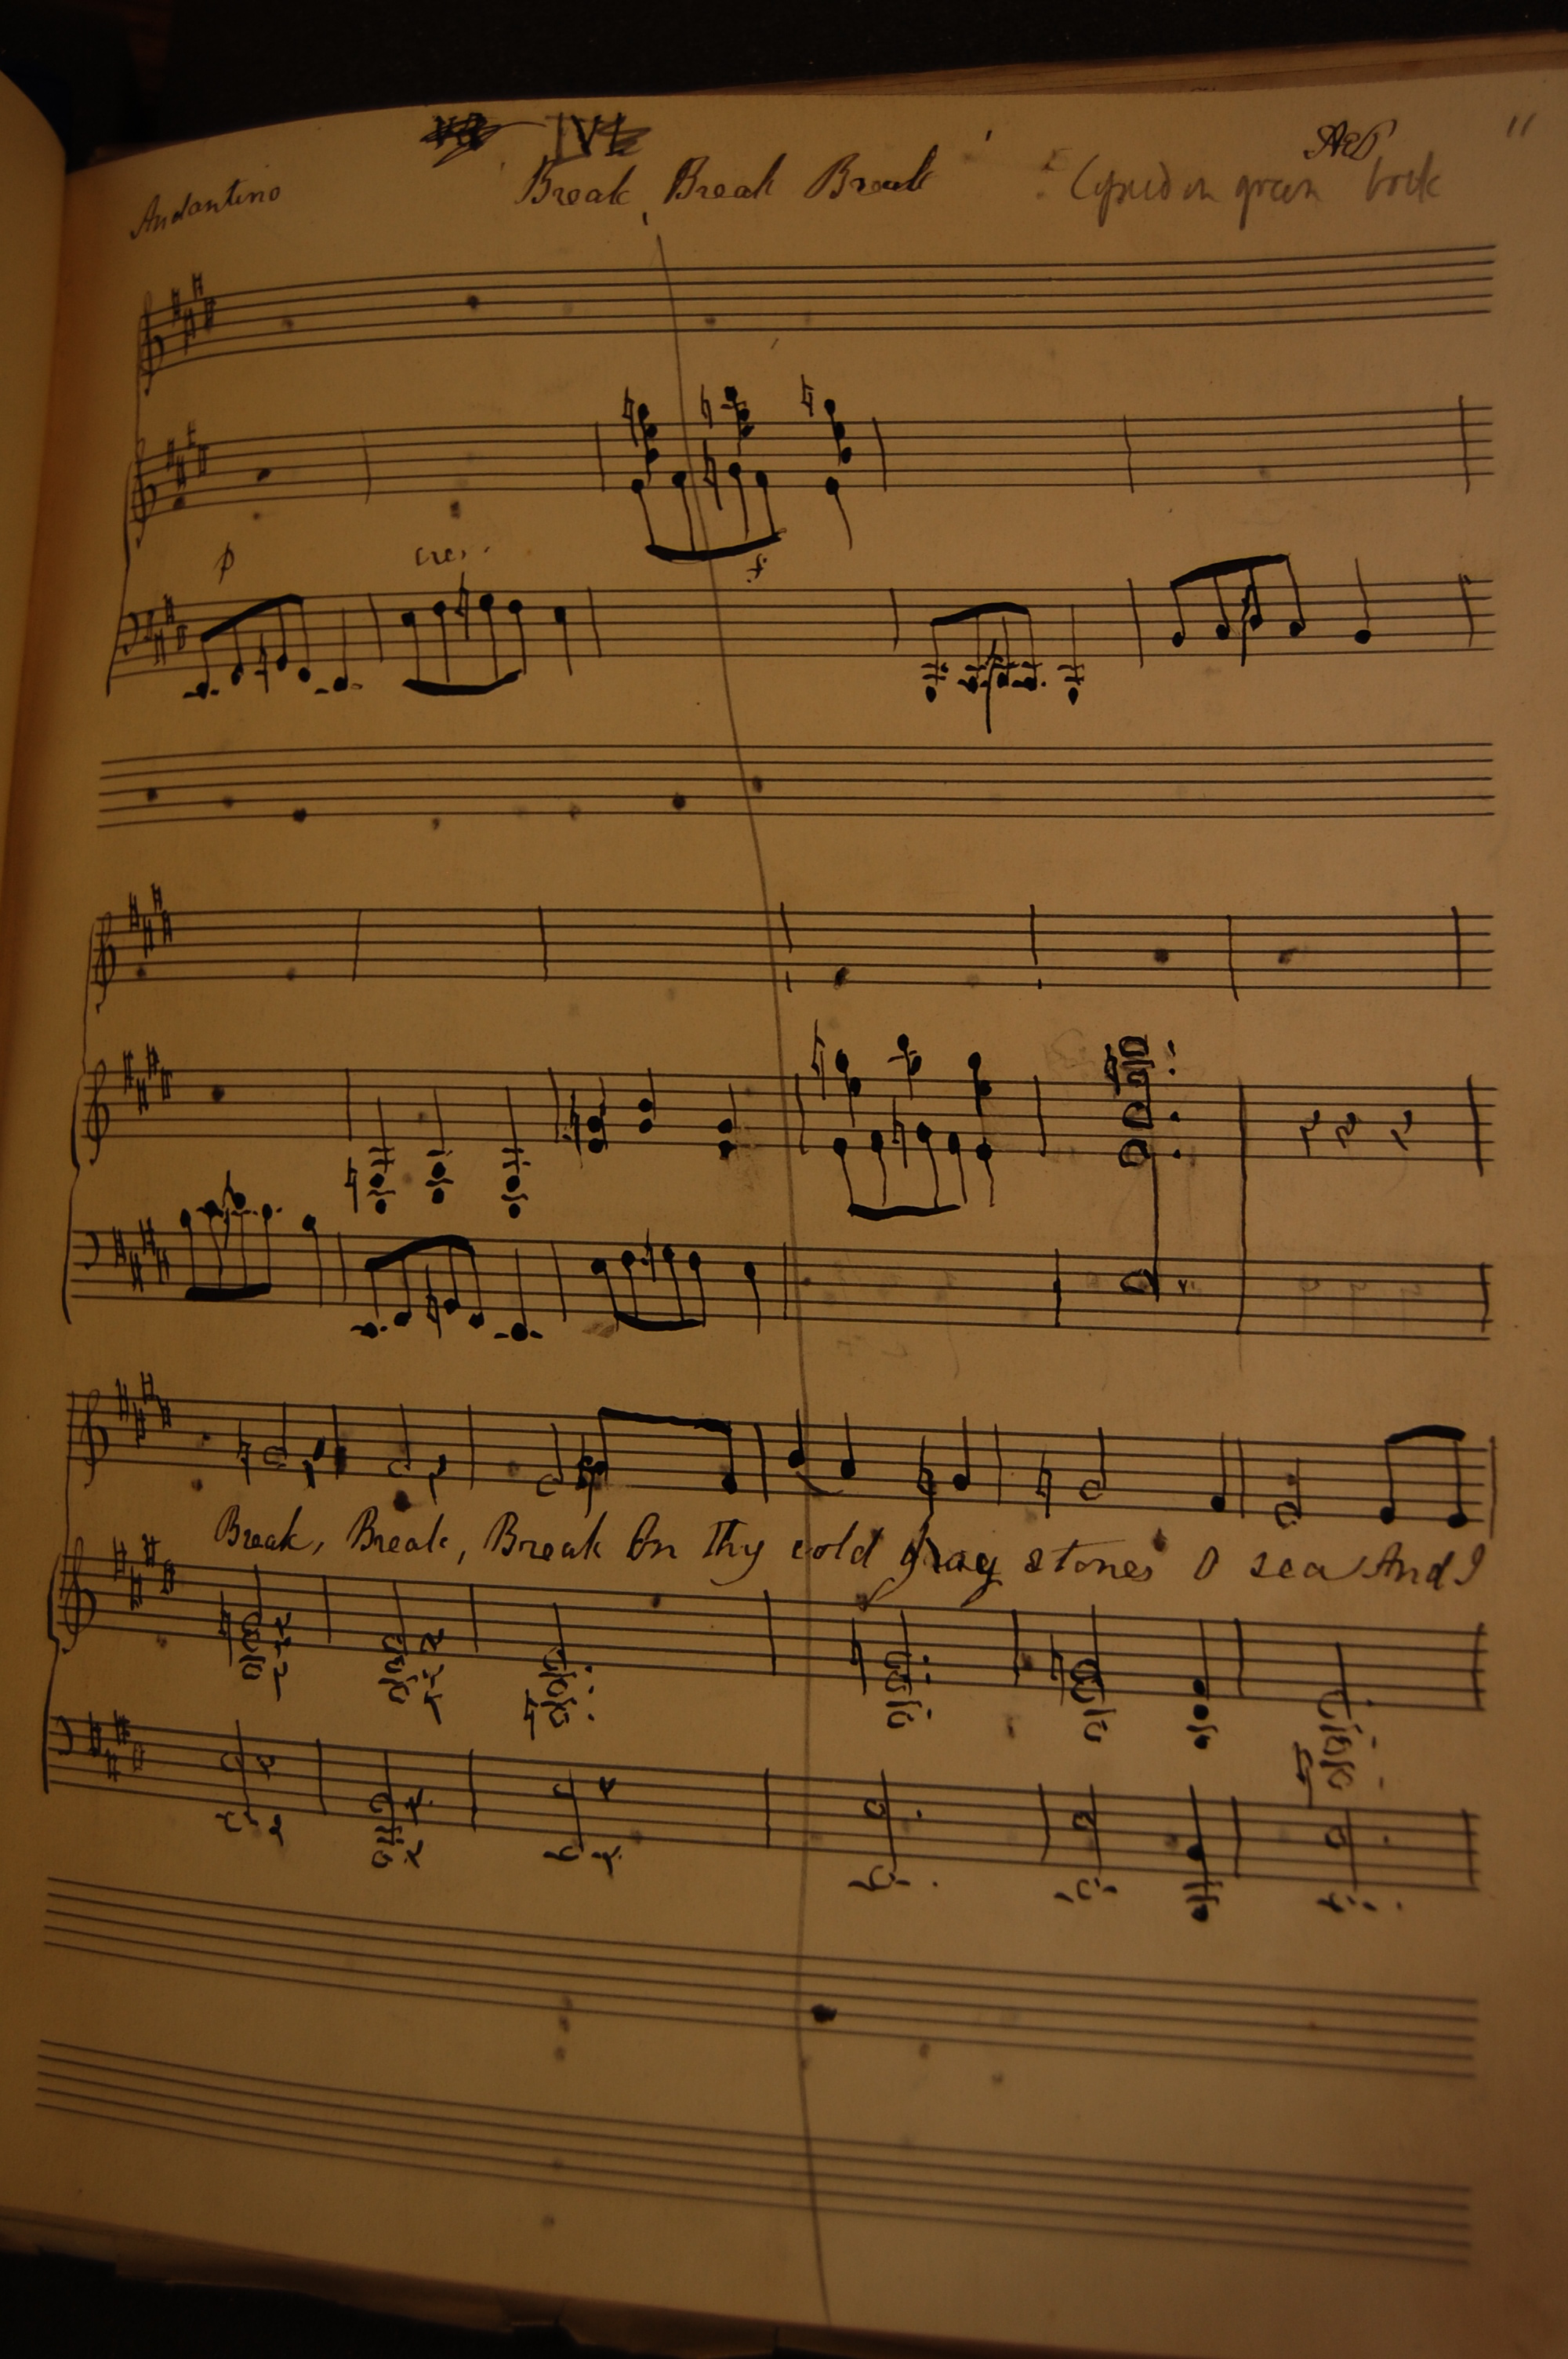 IV
Andantino
Break, Break Break
Copied in green book
11
p
cres.
f
Break, Break, Break On Thy cold gray stones O sea And I